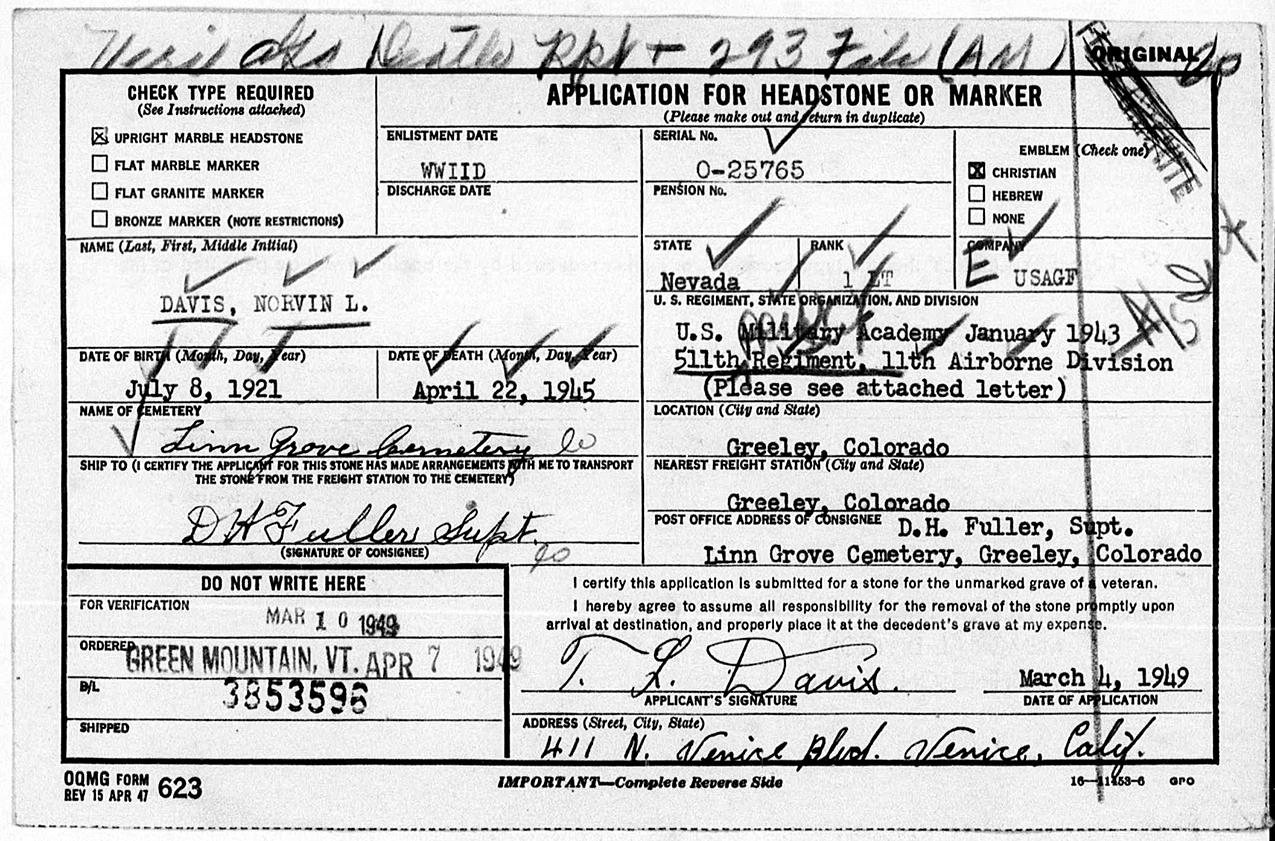 Death Rpt + 293 File (AM)
ORIGINAL
CHECK TYPE REQUIRED
(See Instructions attached)
☒ UPRIGHT MARBLE HEADSTONE
☐ FLAT MARBLE MARKER
☐ FLAT GRANITE MARKER
☐ BRONZE MARKER (NOTE RESTRICTIONS)
APPLICATION FOR HEADSTONE OR MARKER
(Please make out and return in duplicate)
ENLISTMENT DATE
WWIID
DISCHARGE DATE
SERIAL No.
O-25765
PENSION No.
EMBLEM (Check one)
☒ CHRISTIAN
☐ HEBREW
☐ NONE
NAME (Last, First, Middle Initial)
DAVIS, NORVIN L.
STATE
Nevada
RANK
1 LT
COMPANY
E USAGF
U. S. REGIMENT, STATE ORGANIZATION, AND DIVISION
U.S. Military Academy January 1943
511th Regiment, 11th Airborne Division
(Please see attached letter)
DATE OF BIRTH (Month, Day, Year)
July 8, 1921
DATE OF DEATH (Month, Day, Year)
April 22, 1945
NAME OF CEMETERY
Linn Grove Cemetery
LOCATION (City and State)
Greeley, Colorado
SHIP TO (I CERTIFY THE APPLICANT FOR THIS STONE HAS MADE ARRANGEMENTS WITH ME TO TRANSPORT
THE STONE FROM THE FREIGHT STATION TO THE CEMETERY)
D H Fuller Supt.
(SIGNATURE OF CONSIGNEE)
NEAREST FREIGHT STATION (City and State)
Greeley, Colorado
POST OFFICE ADDRESS OF CONSIGNEE D.H. Fuller, Supt.
Linn Grove Cemetery, Greeley, Colorado
DO NOT WRITE HERE
FOR VERIFICATION
MAR 10 1949
ORDERED
GREEN MOUNTAIN, VT. APR 7 1949
B/L
3853596
SHIPPED
I certify this application is submitted for a stone for the unmarked grave of a veteran.
I hereby agree to assume all responsibility for the removal of the stone promptly upon
arrival at destination, and properly place it at the decedent's grave at my expense.
T. L. Davis.
APPLICANT'S SIGNATURE
March 4, 1949
DATE OF APPLICATION
ADDRESS (Street, City, State)
411 N. Venice Blvd. Venice, Calif.
OQMG FORM 623
REV 15 APR 47
IMPORTANT—Complete Reverse Side
16—11453-6 GPO